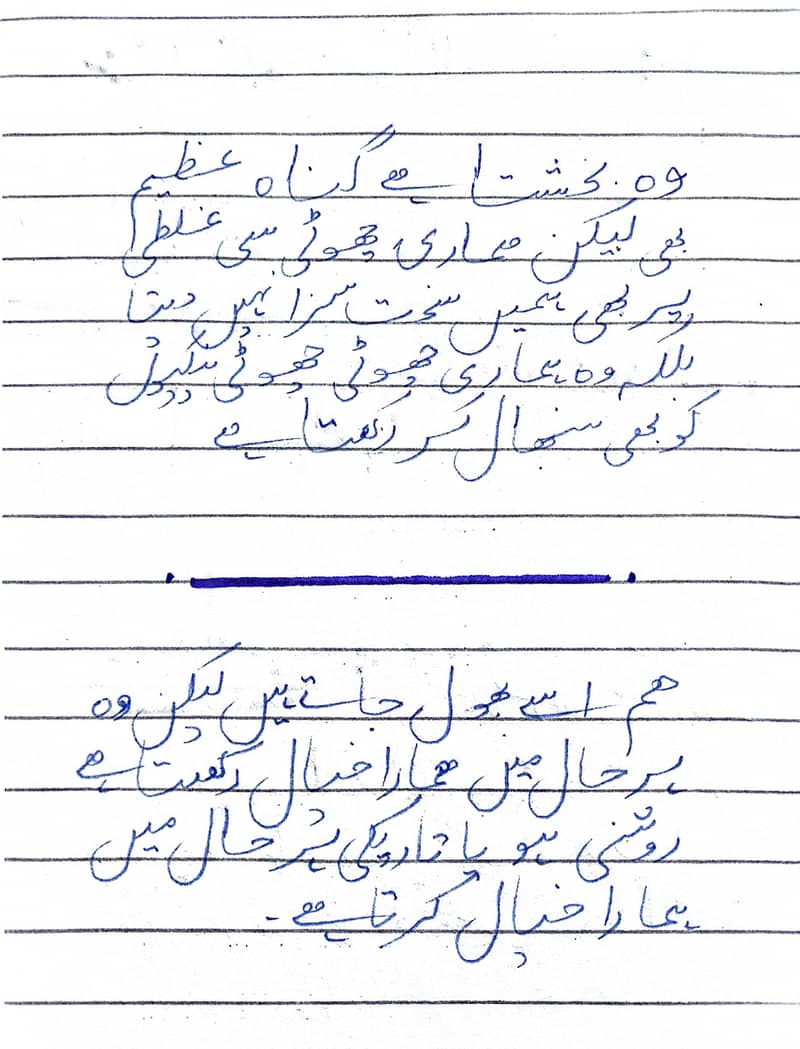 وہ بخشتا ہے گناہ عظیم
بھی لیکن ہماری چھوٹی سی غلطی
پر بھی ہمیں سخت سزا نہیں دیتا
بلکہ وہ ہماری چھوٹی چھوٹی نیکیوں
کو بھی سنبھال کر رکھتا ہے
ہم اسے بھول جاتے ہیں لیکن وہ
ہر حال میں ہمارا خیال رکھتا ہے
روشنی ہو یا تاریکی ہر حال میں
ہمارا خیال کرتا ہے۔